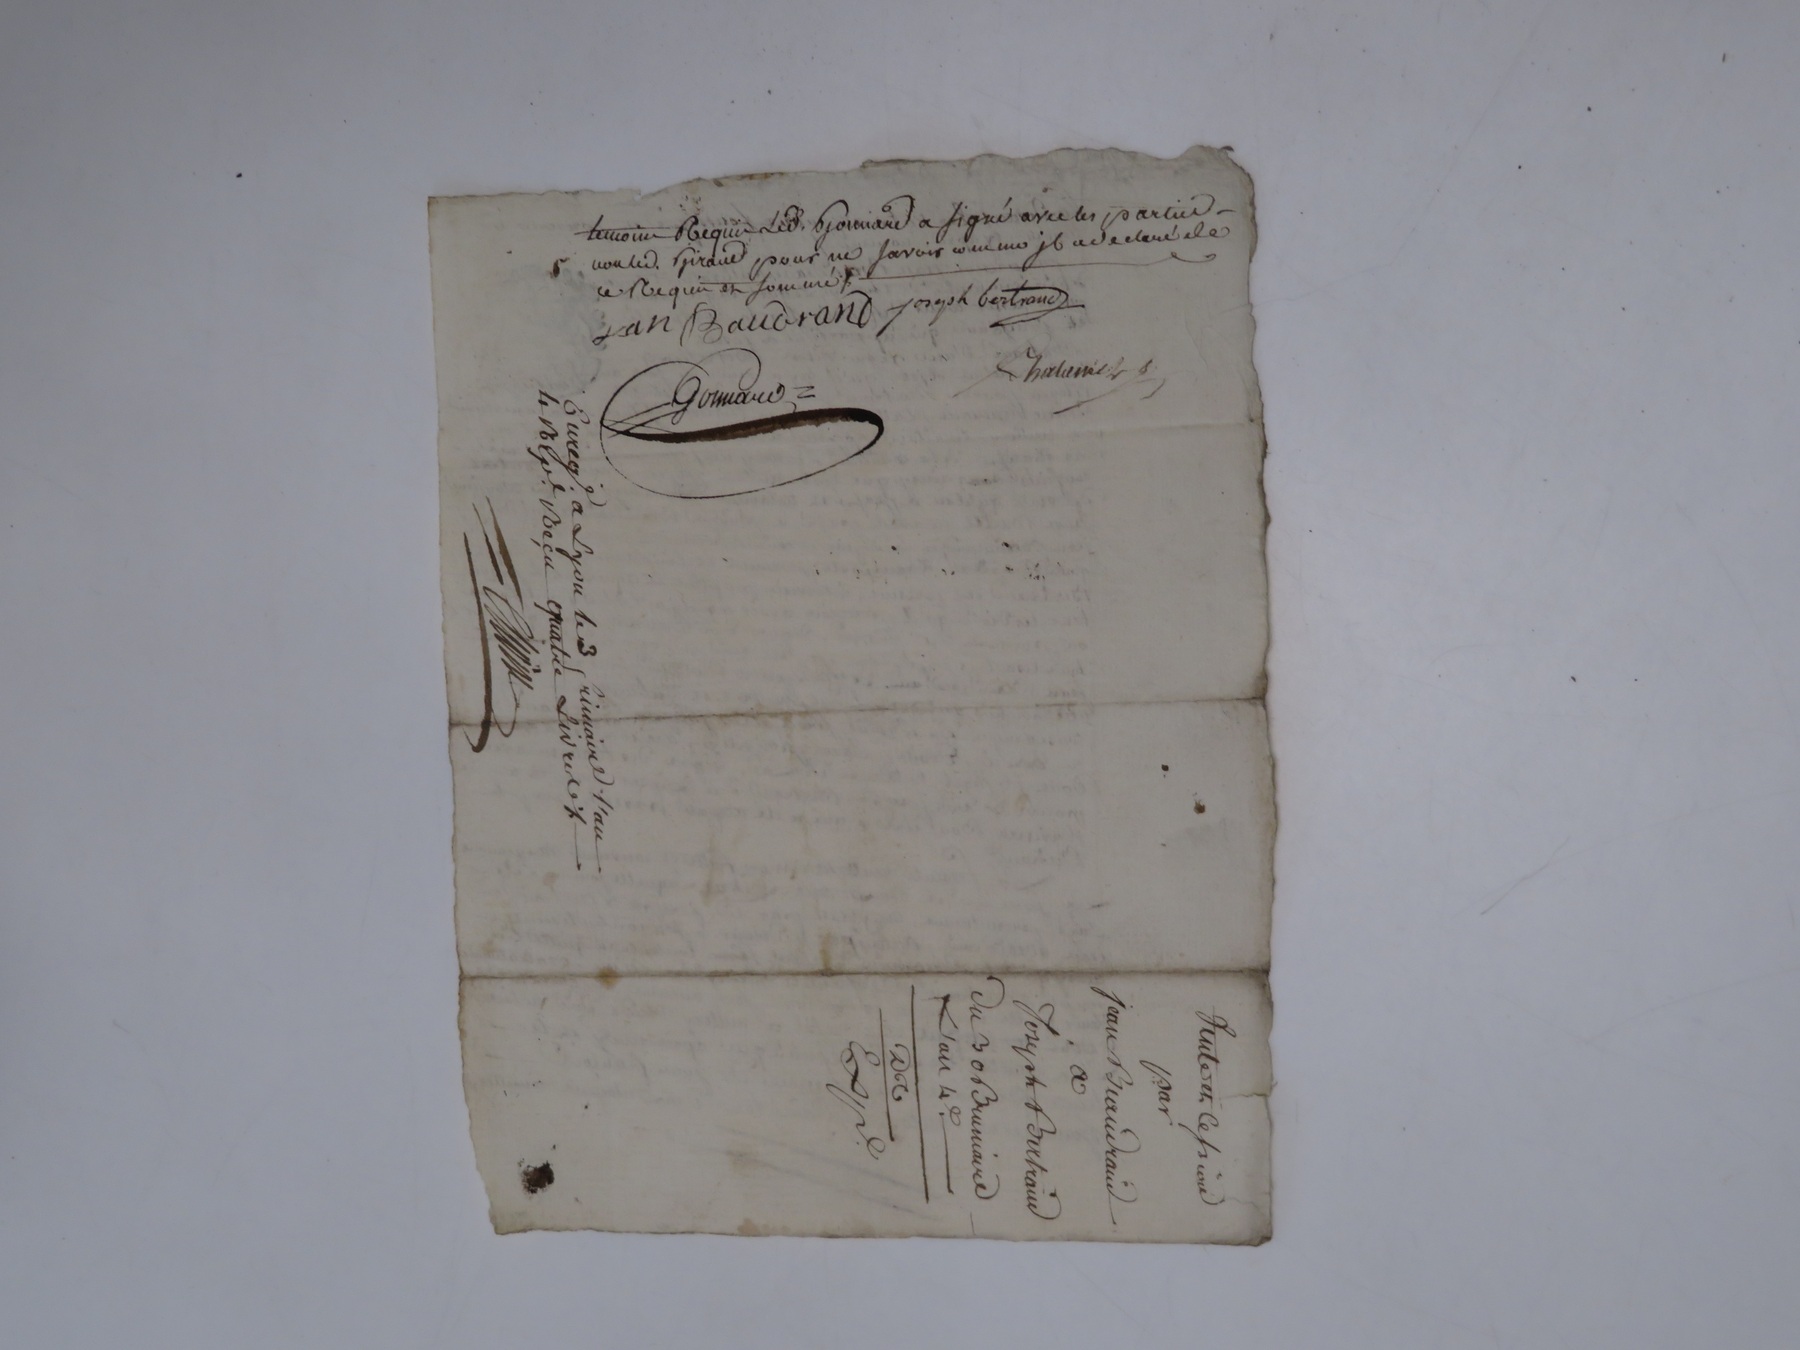 temoins Requis Led. Gonnard a signé avec les parties
non led. Giraud pour ne savoir comme il a declaré de
ce Requis et sommé
jan Baudrand joseph bertrand
Gonnard
Enreg. à Lyon le 3 frimaire l'an
4 Reçu quatre Livres
Vente et Cession
par
jean Baudrand
à
Joseph Bertrand
Du 30 Brumaire
L'an 4e
Exp.